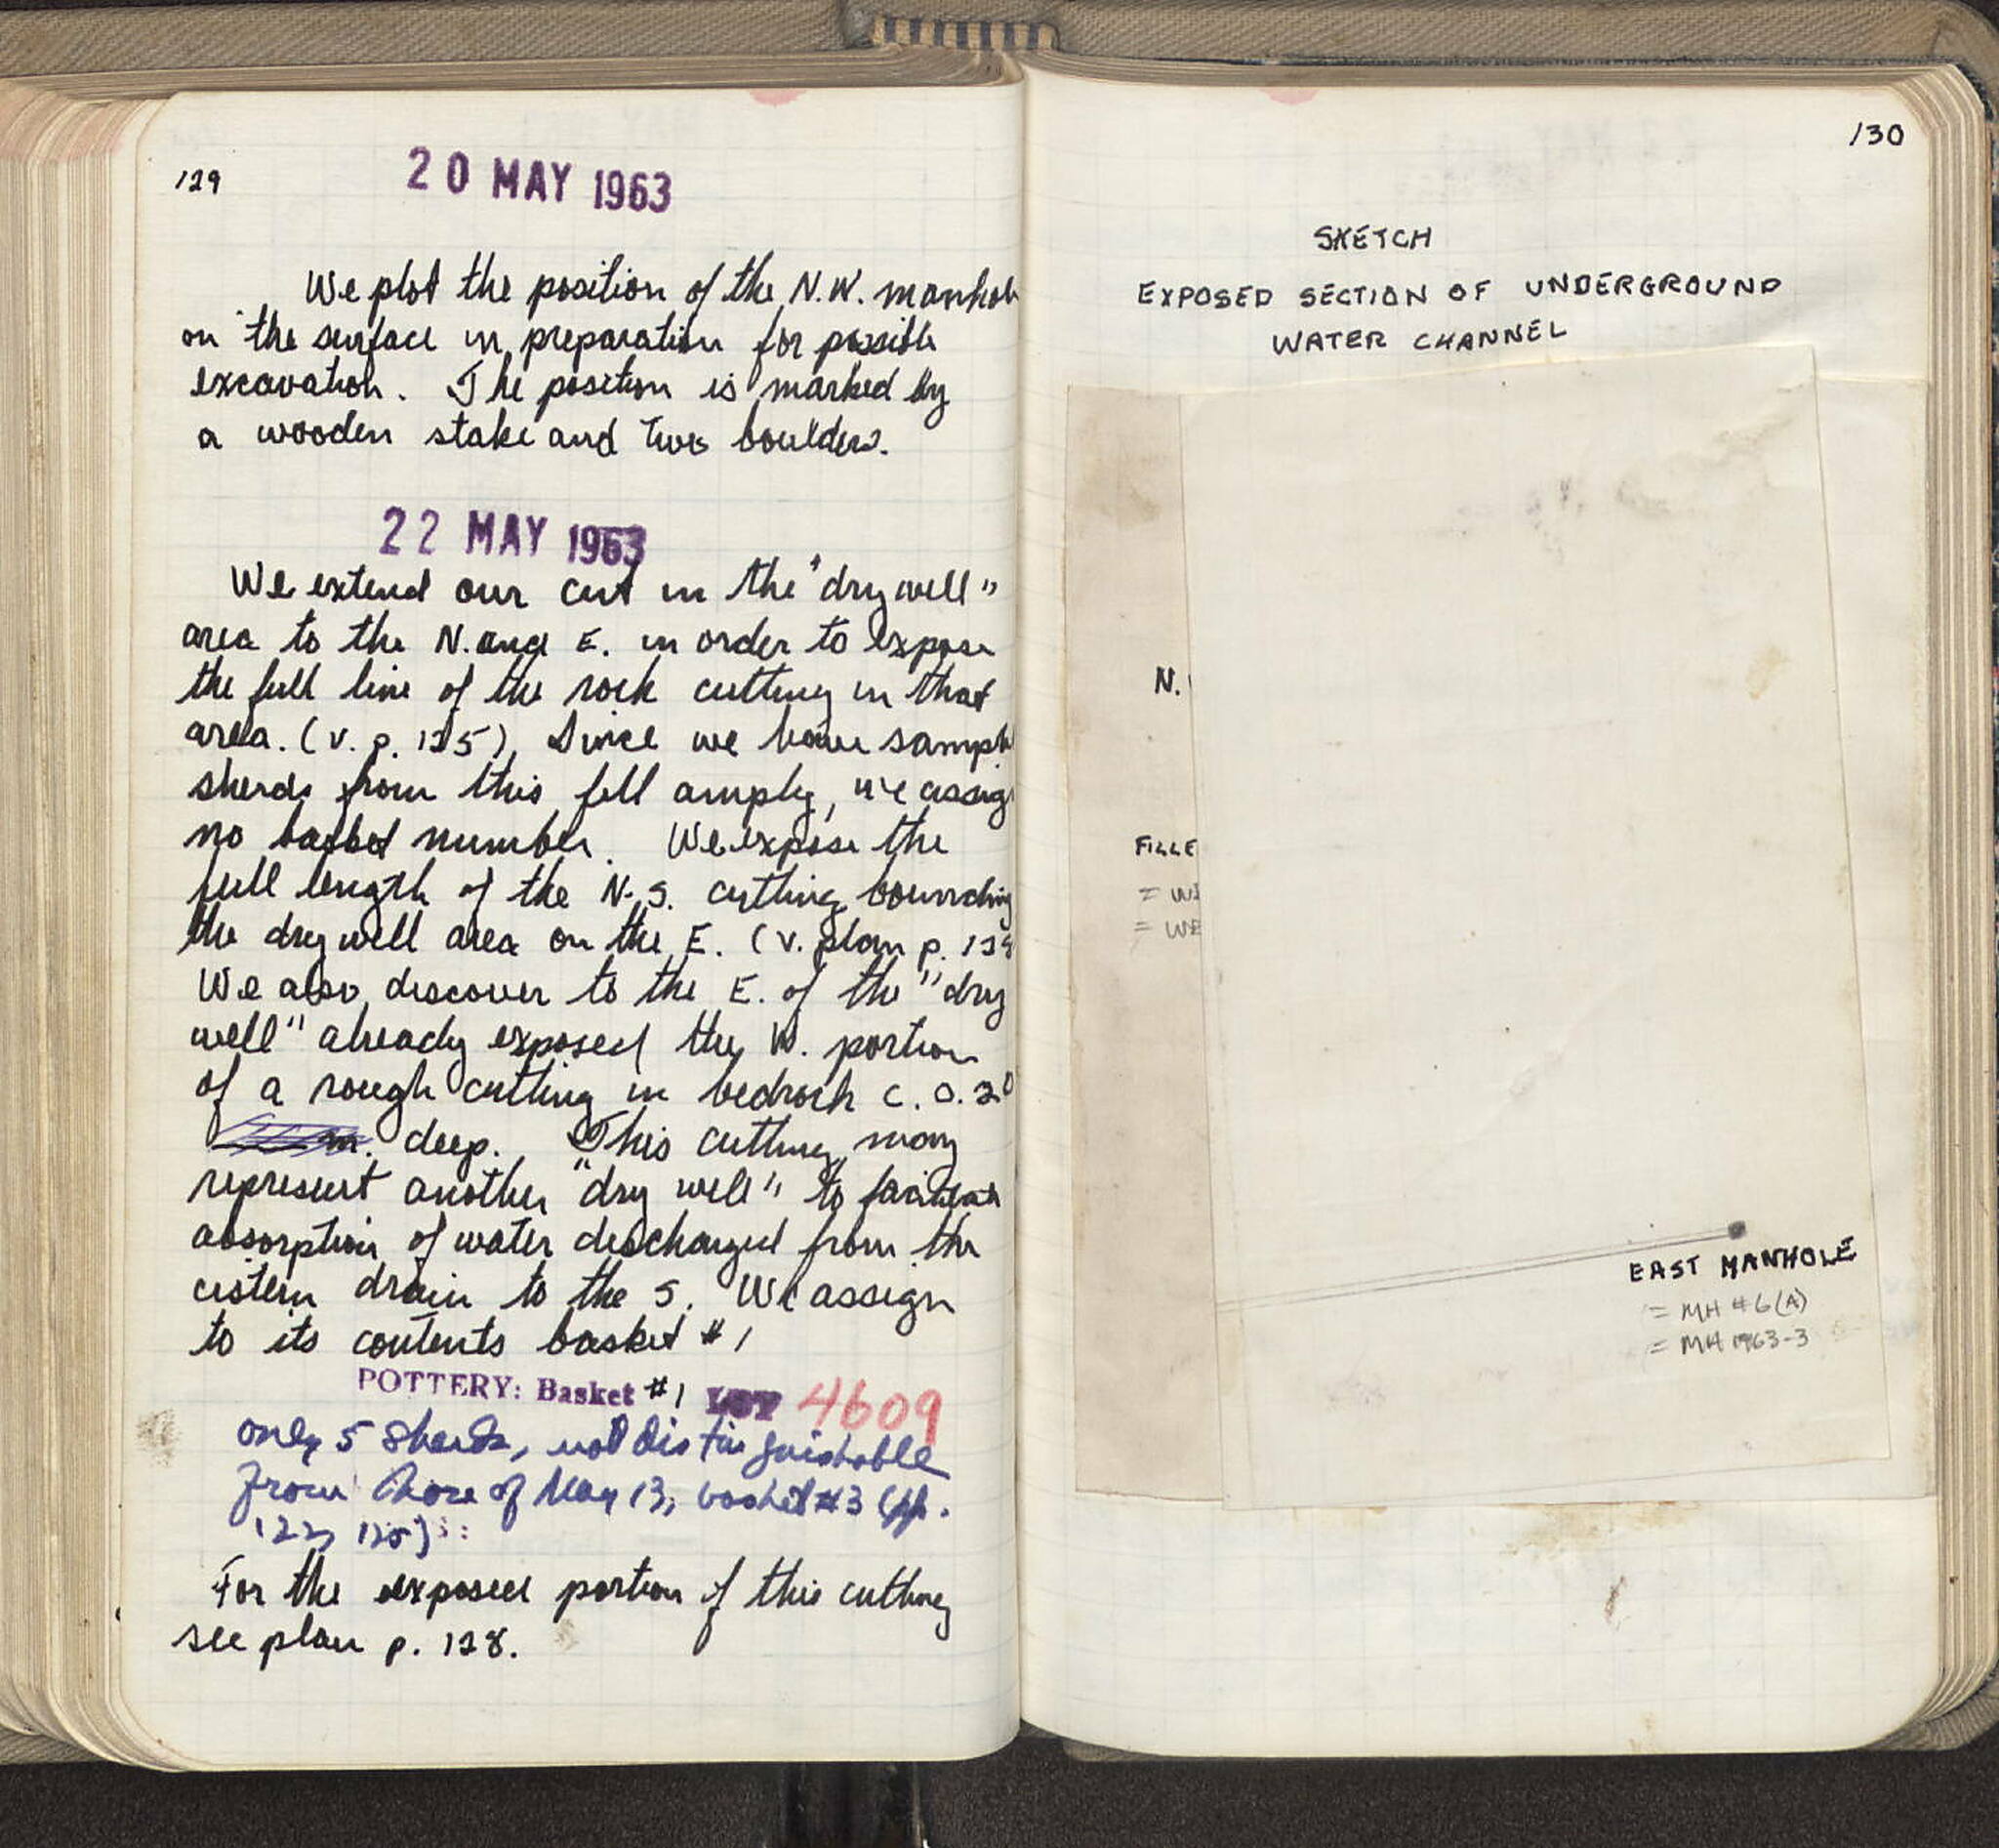 129
20 MAY 1963
We plot the position of the N.W. manhol
on the surface in preparation for possible
excavation. The position is marked by
a wooden stake and two boulders.
22 MAY 1963
We extend our cut in the "dry well"
area to the N. and E. in order to expose
the full line of the rock cutting in that
area. (v. p. 125). Since we have sampl
sherds from this fill amply, we assig
no basket number. We expose the
full length of the N.S. cutting bounding
the dry well area on the E. (v. plan p. 128
We also discover to the E. of the "dry
well" already exposed the W. portion
of a rough cutting in bedrock c. 0.20
m. deep. This cutting may
represent another "dry well" to facilitate
absorption of water discharged from the
cistern drain to the S. We assign
to its contents basket #1
POTTERY: Basket #1 LOT 4609
only 5 sherds, not distinguishable
from those of May 13, basket #3 (pp.
122, 125)
For the exposed portion of this cutting
see plan p. 128.
130
SKETCH
EXPOSED SECTION OF UNDERGROUND
WATER CHANNEL
N.
FILLE
= WE
= WE
EAST MANHOLE
= MH #6(A)
= MH 1963-3